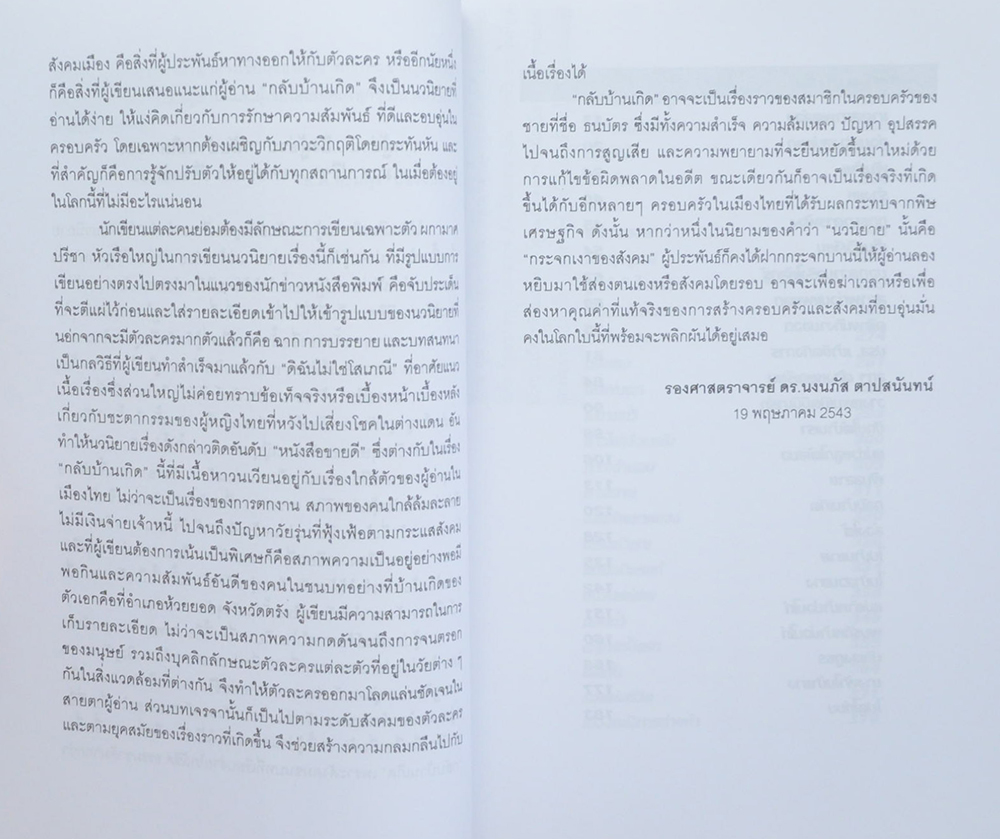 สังคมเมือง คือสิ่งที่ผู้ประพันธ์หาทางออกให้กับตัวละคร หรืออีกนัยหนึ่ง
ก็คือสิ่งที่ผู้เขียนเสนอแนะแก่ผู้อ่าน "กลับบ้านเกิด" จึงเป็นนวนิยายที่
อ่านได้ง่าย ให้แง่คิดเกี่ยวกับการรักษาความสัมพันธ์ ที่ดีและอบอุ่นใน
ครอบครัว โดยเฉพาะหากต้องเผชิญกับภาวะวิกฤติโดยกระทันหัน และ
ที่สำคัญก็คือการรู้จักปรับตัวให้อยู่ได้กับทุกสถานการณ์ ในเมื่อต้องอยู่
ในโลกนี้ที่ไม่มีอะไรแน่นอน
นักเขียนแต่ละคนย่อมต้องมีลักษณะการเขียนเฉพาะตัว ผกามาศ
ปรีชา หัวเรือใหญ่ในการเขียนนวนิยายเรื่องนี้ก็เช่นกัน ที่มีรูปแบบการ
เขียนอย่างตรงไปตรงมาในแนวของนักข่าวหนังสือพิมพ์ คือจับประเด็น
ที่จะตีแผ่ไว้ก่อนและใส่รายละเอียดเข้าไปให้เข้ารูปแบบของนวนิยายที่
นอกจากจะมีตัวละครมากตัวแล้วก็คือ ฉาก การบรรยาย และบทสนทนา
เป็นกลวิธีที่ผู้เขียนทำสำเร็จมาแล้วกับ "ดิฉันไม่ใช่โสเภณี" ที่อาศัยแนว
เนื้อเรื่องซึ่งส่วนใหญ่ไม่ค่อยทราบข้อเท็จจริงหรือเบื้องหน้าเบื้องหลัง
เกี่ยวกับชะตากรรมของผู้หญิงไทยที่หวังไปเสี่ยงโชคในต่างแดน อัน
ทำให้นวนิยายเรื่องดังกล่าวติดอันดับ "หนังสือขายดี" ซึ่งต่างกับในเรื่อง
"กลับบ้านเกิด" นี้ที่มีเนื้อหาวนเวียนอยู่กับเรื่องใกล้ตัวของผู้อ่านใน
เมืองไทย ไม่ว่าจะเป็นเรื่องของการตกงาน สภาพของคนใกล้ล้มละลาย
ไม่มีเงินจ่ายเจ้าหนี้ ไปจนถึงปัญหาวัยรุ่นที่ฟุ้งเฟ้อตามกระแสสังคม
และที่ผู้เขียนต้องการเน้นเป็นพิเศษก็คือสภาพความเป็นอยู่อย่างพอมี
พอกินและความสัมพันธ์อันดีของคนในชนบทอย่างที่บ้านเกิดของ
ตัวเอกคือที่อำเภอห้วยยอด จังหวัดตรัง ผู้เขียนมีความสามารถในการ
เก็บรายละเอียด ไม่ว่าจะเป็นสภาพความกดดันจนถึงการจนตรอก
ของมนุษย์ รวมถึงบุคลิกลักษณะตัวละครแต่ละตัวที่อยู่ในวัยต่าง ๆ
กันในสิ่งแวดล้อมที่ต่างกัน จึงทำให้ตัวละครออกมาโลดแล่นชัดเจนใน
สายตาผู้อ่าน ส่วนบทเจรจานั้นก็เป็นไปตามระดับสังคมของตัวละคร
และตามยุคสมัยของเรื่องราวที่เกิดขึ้น จึงช่วยสร้างความกลมกลืนไปกับ
เนื้อเรื่องได้
"กลับบ้านเกิด" อาจจะเป็นเรื่องราวของสมาชิกในครอบครัวของ
ชายที่ชื่อ ธนบัตร ซึ่งมีทั้งความสำเร็จ ความล้มเหลว ปัญหา อุปสรรค
ไปจนถึงการสูญเสีย และความพยายามที่จะยืนหยัดขึ้นมาใหม่ด้วย
การแก้ไขข้อผิดพลาดในอดีต ขณะเดียวกันก็อาจเป็นเรื่องจริงที่เกิด
ขึ้นได้กับอีกหลายๆ ครอบครัวในเมืองไทยที่ได้รับผลกระทบจากพิษ
เศรษฐกิจ ดังนั้น หากว่าหนึ่งในนิยามของคำว่า "นวนิยาย" นั้นคือ
"กระจกเงาของสังคม" ผู้ประพันธ์ก็คงได้ฝากกระจกบานนี้ให้ผู้อ่านลอง
หยิบมาใช้ส่องตนเองหรือสังคมโดยรอบ อาจจะเพื่อฆ่าเวลาหรือเพื่อ
ส่องหาคุณค่าที่แท้จริงของการสร้างครอบครัวและสังคมที่อบอุ่นมั่น
คงในโลกใบนี้ที่พร้อมจะพลิกผันได้อยู่เสมอ
รองศาสตราจารย์ ดร.นงนภัส ตาปสนันทน์
19 พฤษภาคม 2543